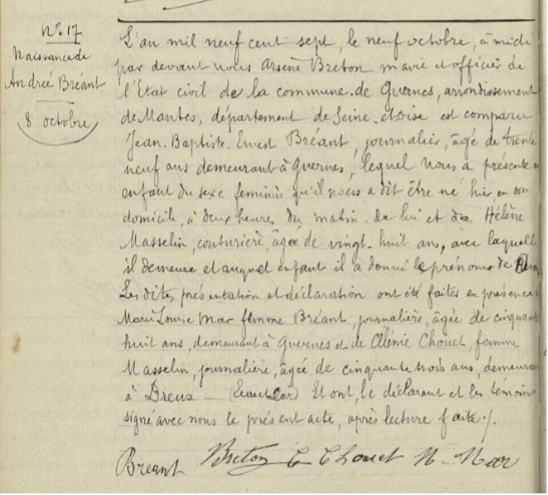 N° 17
Naissance de
Andrée Bréant
8 octobre
L'an mil neuf cent sept, le neuf octobre, à midi
par devant nous Arsène Breton maire et officier de
l'Etat civil de la commune de Guernes, arrondissement
de Mantes, département de Seine-et-Oise est comparu
Jean-Baptiste-Ernest Bréant, journalier, âgé de trente
neuf ans demeurant à Guernes, lequel nous a présenté
enfant du sexe feminin qu'il nous a dit être né hier en son
domicile, à deux heures du matin de lui et de Hélène
Masselin, couturière, âgée de vingt-huit ans, avec laquelle
il demeure et auquel enfant il a donné le prénoms de
Les dites présentation et déclaration ont été faites en présence
Marie Louise Mar femme Bréant, journalière, âgée de cinquante
huit ans, demeurant à Guernes et de Clénie Chouet, femme
Masselin, journalière, âgée de cinquante trois ans, demeurant
à Dreux - Et ont, le déclarant et les témoins
signé avec nous le présent acte, après lecture faite./.
Breant Breton C Chouet N Mar